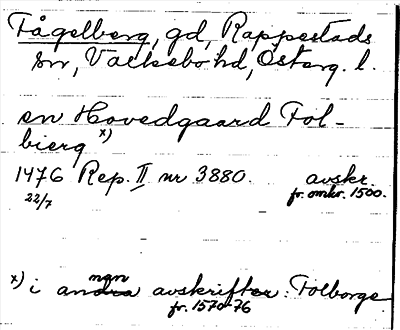 Fågelberg, gd, Rappestads
sn, Valkebo hd, Österg. l.
en Hovedgaard Fol-
bierg x)
1476 Rep. II nr 3880. avskr.
22/7 fr. omkr. 1500.
x) i annan avskrift: Folborge
fr. 1570-76